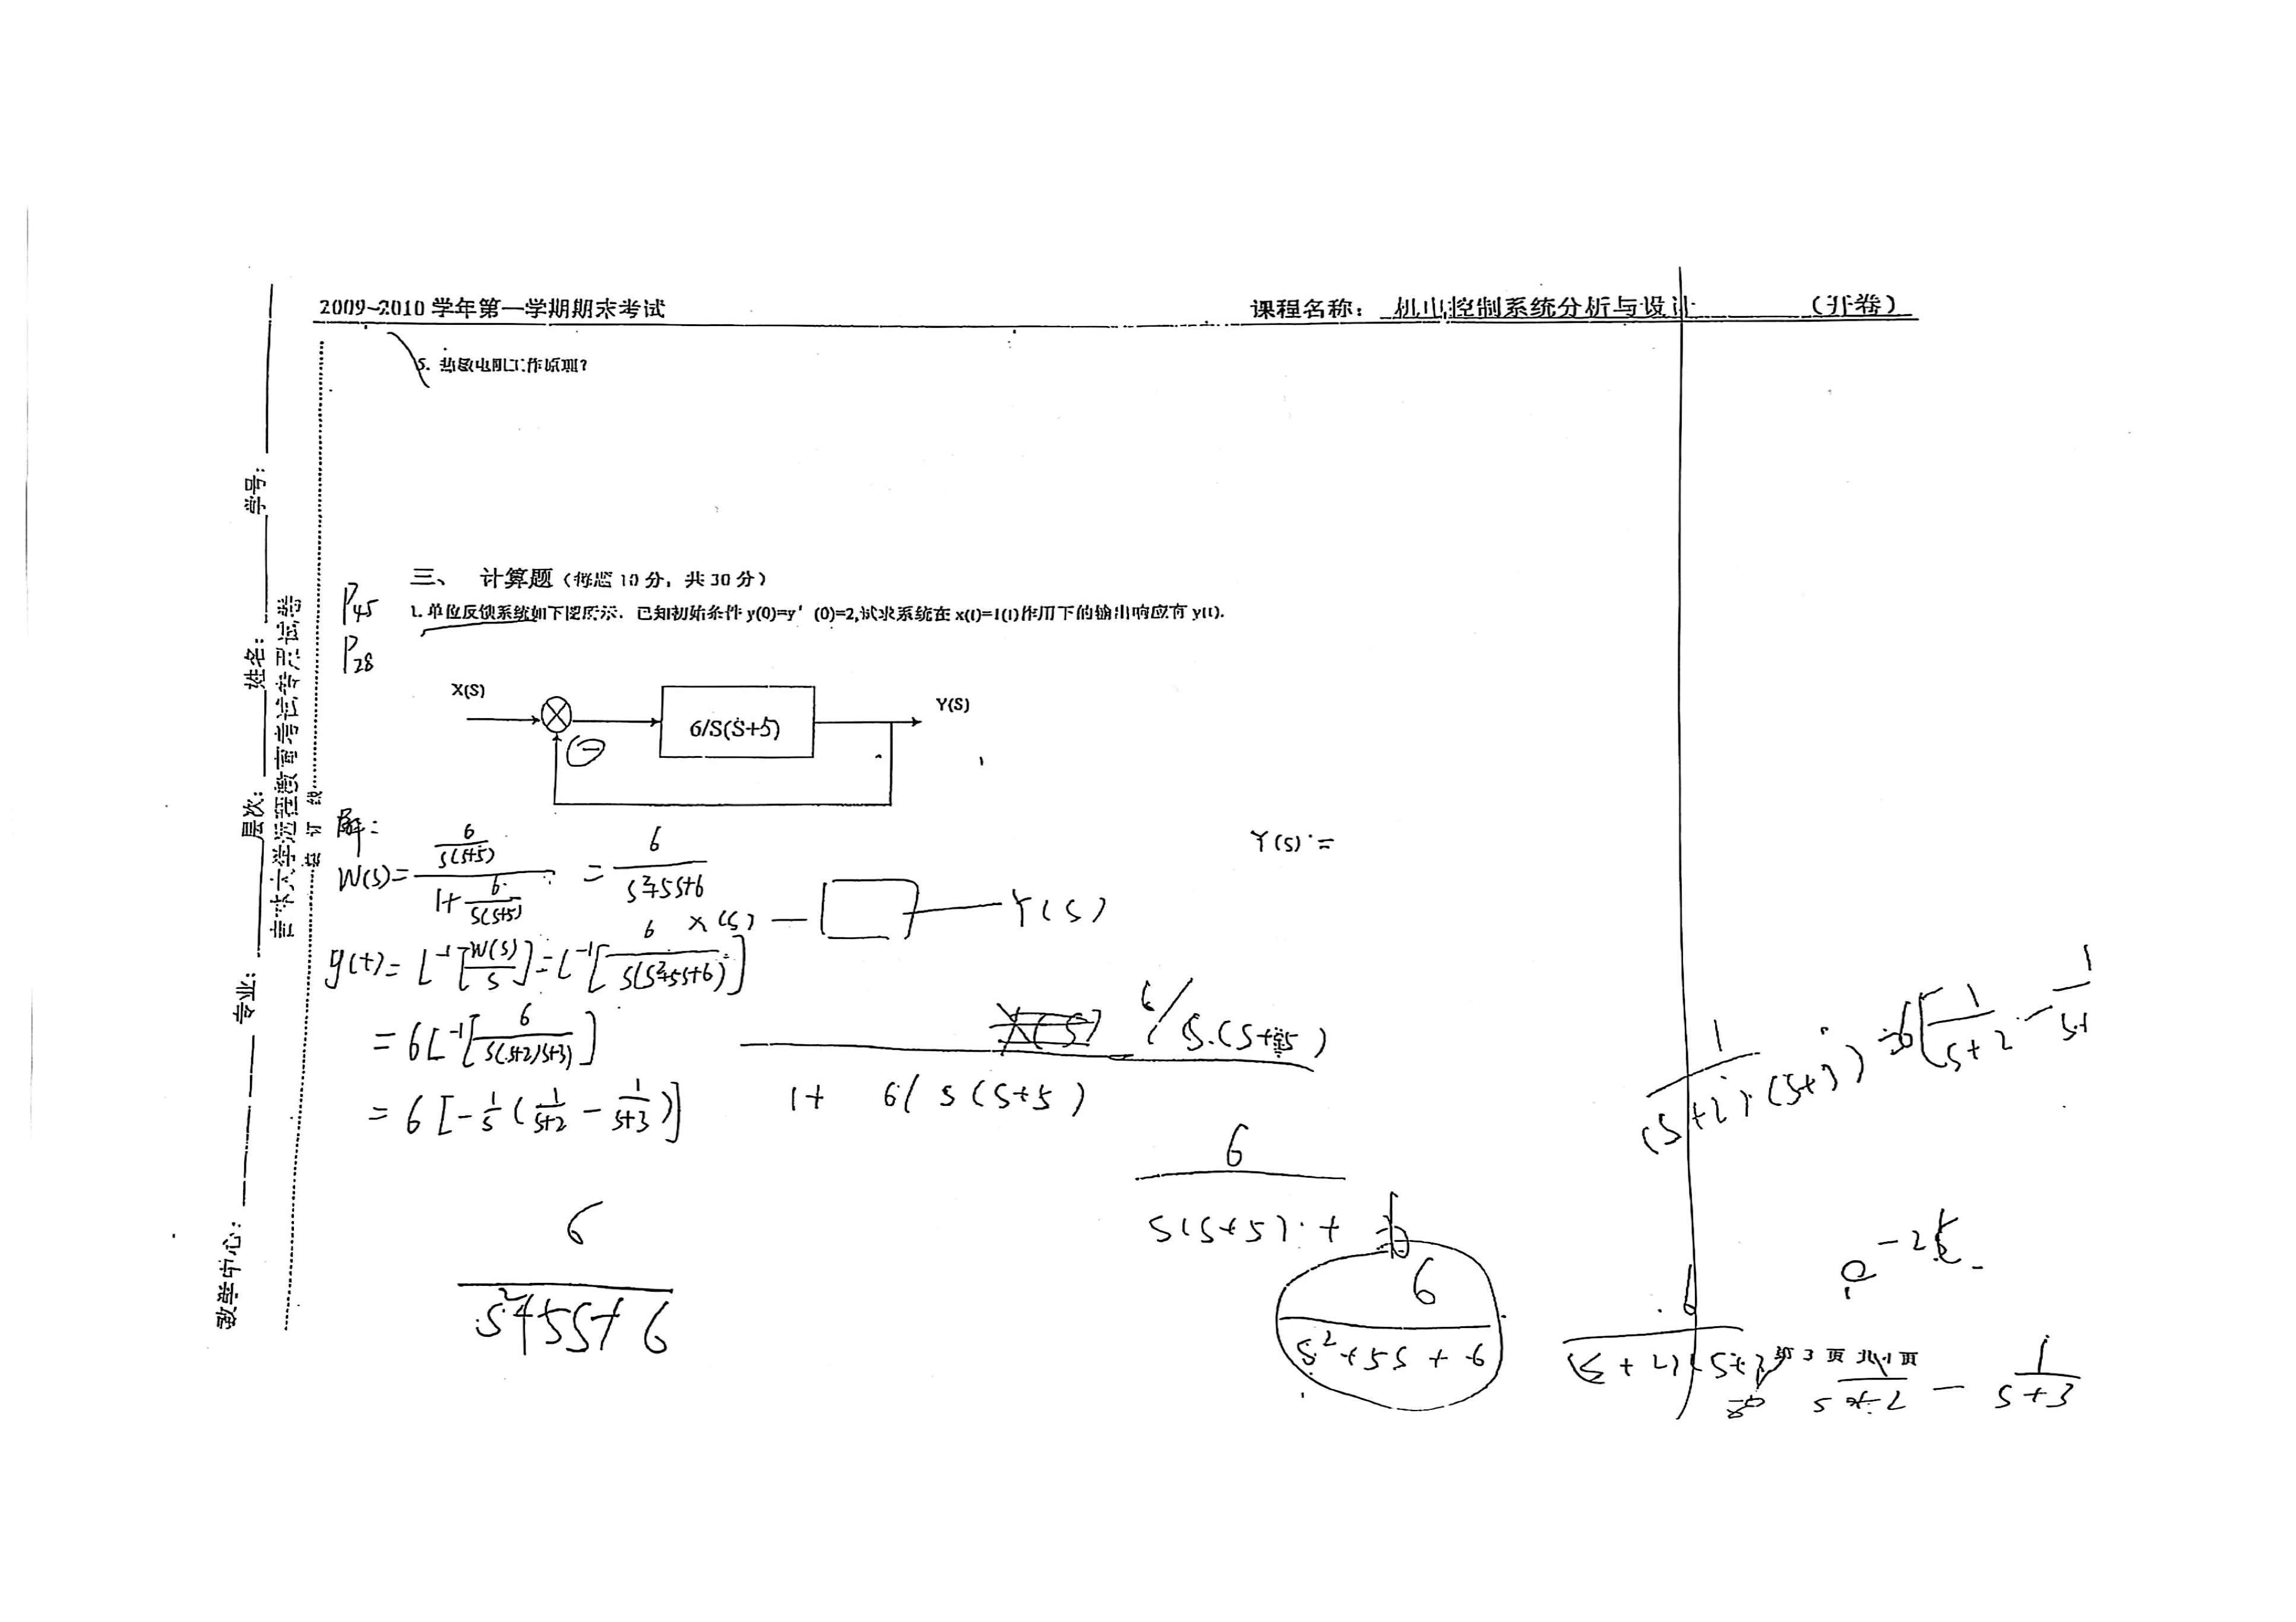 2009-2010 学年第一学期期末考试
课程名称： 机电控制系统分析与设计 （开卷）
5. 热敏电阻工作原理？
学号：
姓名：
层次：
专业：
教学中心：
吉林大学远程教育考试专用试卷
装 订 线
三、 计算题（每题 10 分，共 30 分）
P45
P28
1. 单位反馈系统如下图所示．已知初始条件 y(0)=y'(0)=2,试求系统在 x(t)=1(t)作用下的输出响应有 y(t).
X(S)
6/S(S+5)
Y(S)
−
解：
W(s)= \frac{\frac{6}{s(s+5)}}{1+\frac{6}{s(s+5)}} = \frac{6}{s²+5s+6}
Y(s) =
X(s) — Y(s)
y(t)= L⁻¹[\frac{W(s)}{s}]=L⁻¹[\frac{6}{s(s²+5s+6)}]
= 6L⁻¹[\frac{6}{s(s+2)(s+3)}]
= 6[-\frac{1}{s}(\frac{1}{s+2} - \frac{1}{s+3})]
X(S) 6/S.(S+5)
1+ 6/ s(s+5)
\frac{6}{s(s+5)+6}
\frac{6}{s²+5s+6}
\frac{6}{s²+5s+6}
\frac{1}{(s+2)(s+3)} =6[\frac{1}{s+2} - \frac{1}{s+
e^{-2t} -
\frac{6}{(s+2)(s+3)}
第 3 页 共 4 页
\frac{1}{s+2} - \frac{1}{s+3}